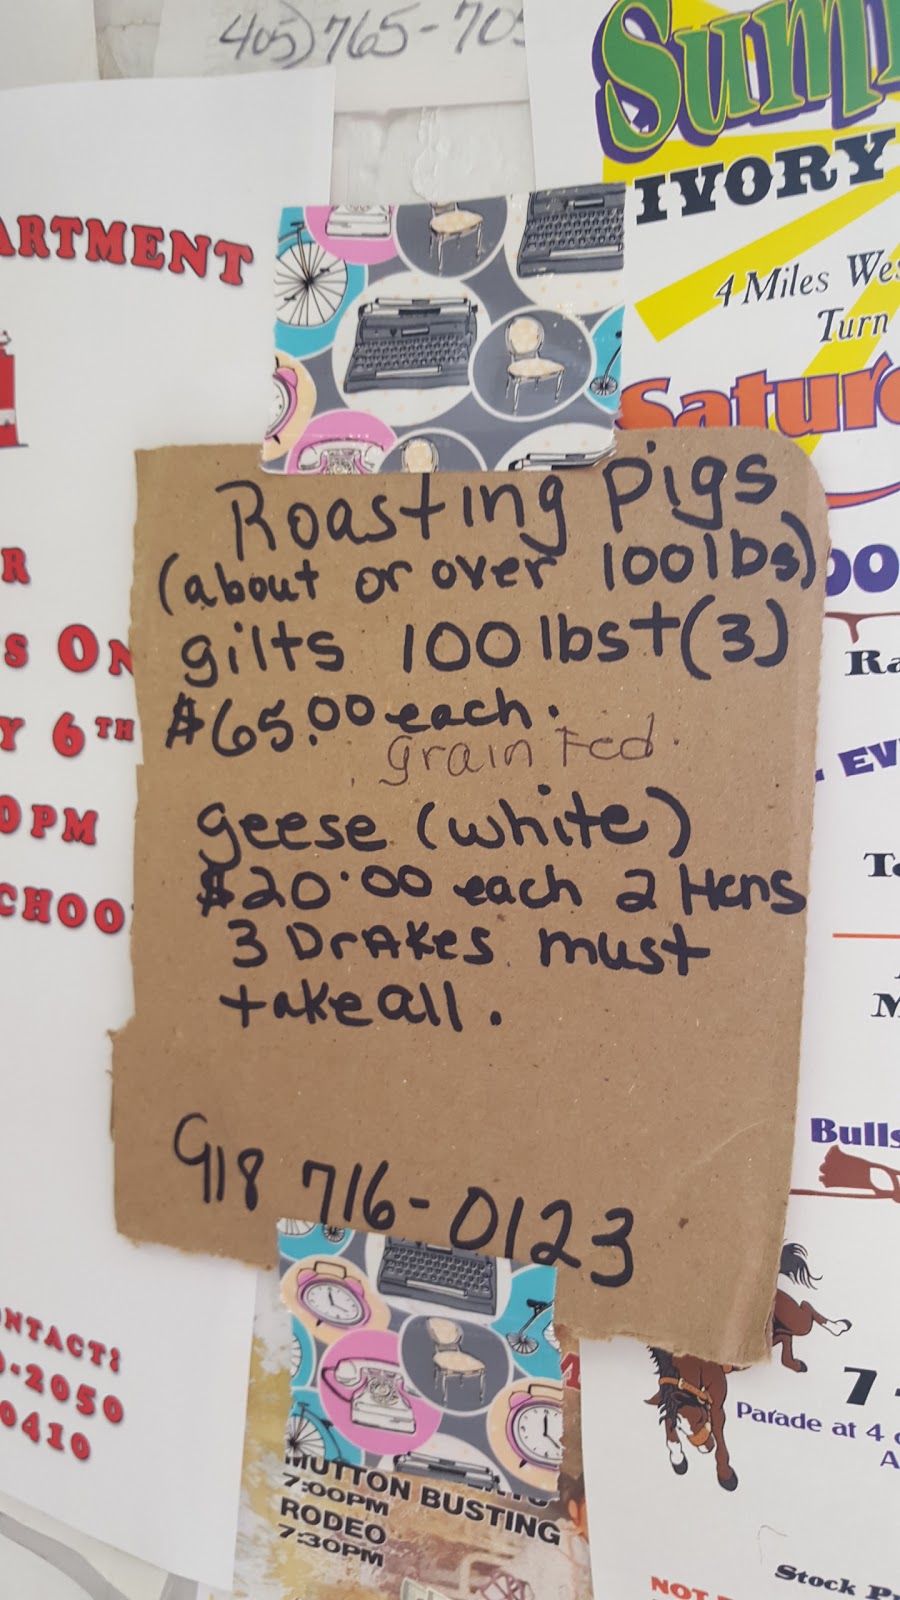 405) 765-705
ARTMENT
R
S ON
Y 6TH
0PM
CHOO
ONTACT:
-2050
0410
Roasting pigs
(about or over 100 lbs)
gilts 100 lbs+(3)
$65.00 each.
grain Fed.
geese (white)
$20.00 each 2 Hens
3 DrAKes must
take all.
918 716-0123
MUTTON BUSTING
7:00PM
RODEO
7:30PM
Sum
IVORY
4 Miles Wes
Turn
Satur
OO
Ra
EV
T
M
Bulls
7
Parade at 4
A
Stock Pr
NOT